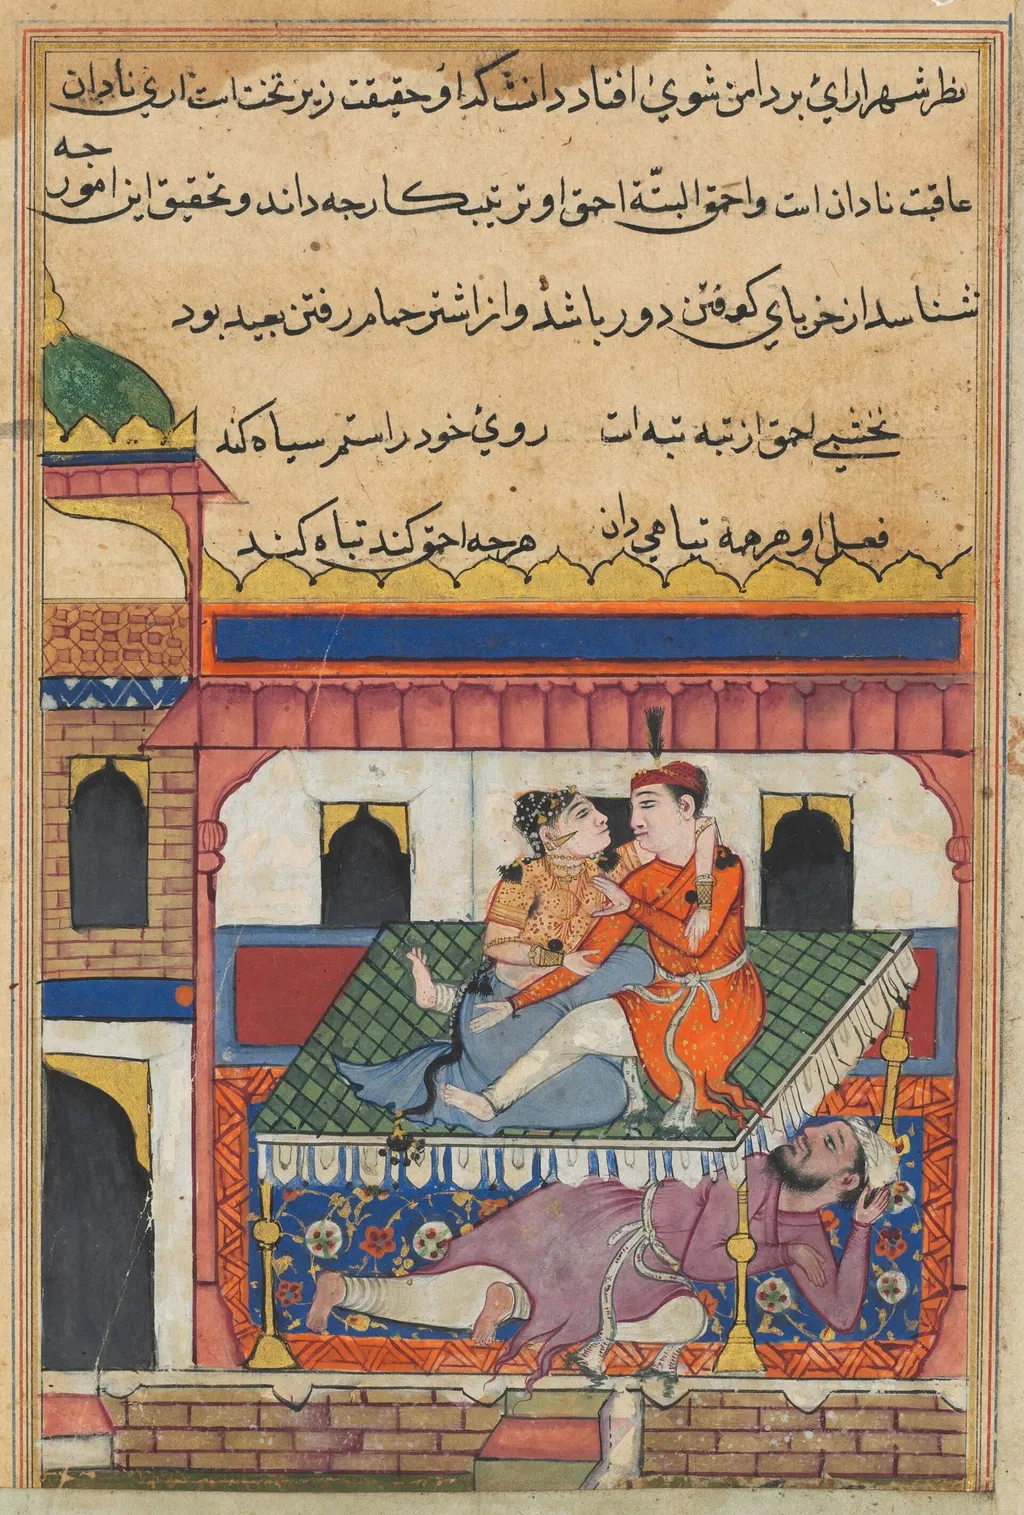 نظر شهرارای بر دامن شوئ افتاد دانست که او حقیقت زیر تخت است اری نادان
عاقبت نادان است واحمق البتّة احمق او ترتیب کار جه داند و تحقیق این امور جه
شناسد از خر بای کوفتن دور باشد و از اشتر حمام رفتن بعید بود
نخشبی احمق از تبه تبه است روی خود را ستم سیاه کند
فعل او هر همه تباهی دان هرجه احمق کند تباه کند